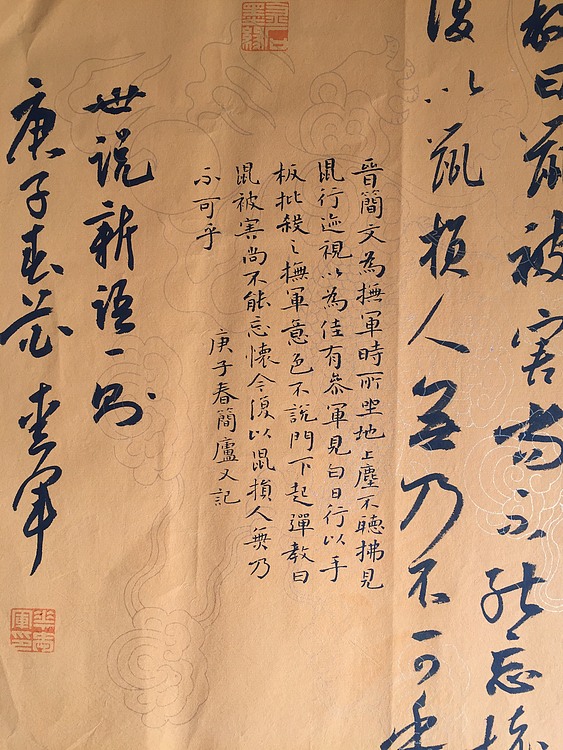 教曰鼠被害尚不能忘懷
復以鼠損人無乃不可乎
金石墨緣
晉簡文為撫軍時所坐地上塵不聽拂見
鼠行迹視以為佳有參軍見白日行以手
板批殺之撫軍意色不說門下起彈教曰
鼠被害尚不能忘懷今復以鼠損人無乃
不可乎
庚子春簡廬又記
世說新語一則
庚子春 軍